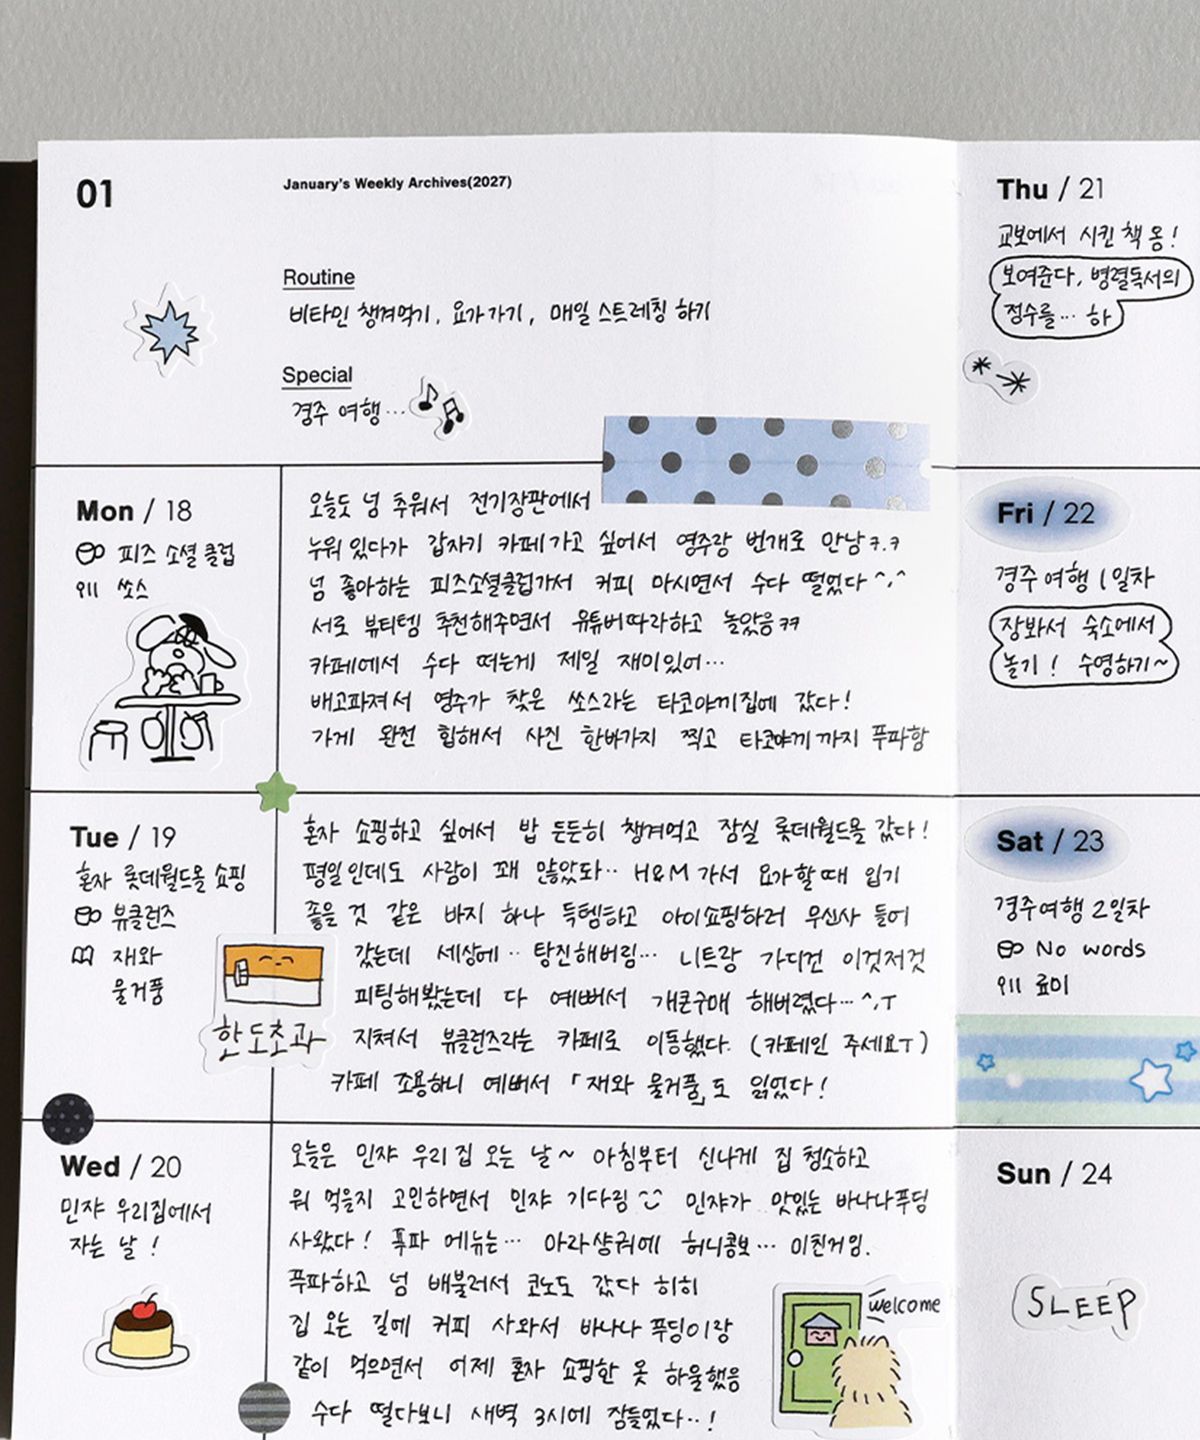 01
January's Weekly Archives(2027)
Routine
비타민 챙겨먹기, 요가 가기, 매일 스트레칭 하기
Special
경주 여행…
Mon / 18
피즈 소셜 클럽
쏘스
오늘도 넘 추워서 전기장판에서
누워 있다가 갑자기 카페 가고 싶어서 영주랑 번개로 만남ㅋ.ㅋ
넘 좋아하는 피즈소셜클럽가서 커피 마시면서 수다 떨었다^.^
서로 뷰티템 추천해주면서 유튜버따라하고 놀았음ㅋㅋ
카페에서 수다 떠는게 제일 재미있어…
배고파져서 영주가 찾은 쏘스라는 타코야끼집에 갔다!
가게 완전 힙해서 사진 한바가지 찍고 타코야끼까지 푸파함
Tue / 19
혼자 롯데월드몰 쇼핑
뷰클런즈
재와
물거품
한도초과
혼자 쇼핑하고 싶어서 밥 든든히 챙겨먹고 잠실 롯데월드몰 갔다!
평일인데도 사람이 꽤 많았돠·· H&M 가서 요가할 때 입기
좋을 것 같은 바지 하나 득템하고 아이쇼핑하러 무신사 들어
갔는데 세상에·· 탕진해버림… 니트랑 가디건 이것저것
피팅해봤는데 다 예뻐서 개큰구매 해버렸다…^.ㅜ
지쳐서 뷰클런즈라는 카페로 이동했다. (카페인 주세요ㅜ)
카페 조용하니 예뻐서 「재와 물거품」도 읽었다!
Wed / 20
민쟈 우리집에서
자는 날!
오늘은 민쟈 우리 집 오는 날~ 아침부터 신나게 집 청소하고
뭐 먹을지 고민하면서 민쟈 기다림 민쟈가 맛있는 바나나푸딩
사왔다! 푸파 메뉴는… 마라샹궈에 허니콤보… 미친거임.
푸파하고 넘 배불러서 코노도 갔다 히히
집 오는 길에 커피 사와서 바나나 푸딩이랑
같이 먹으면서 어제 혼자 쇼핑한 옷 하울했음
수다 떨다보니 새벽 3시에 잠들었다··!
welcome
Thu / 21
교보에서 시킨 책 옴!
보여준다, 병렬독서의
정수를… 하
Fri / 22
경주 여행 1일차
장봐서 숙소에서
놀기! 수영하기~
Sat / 23
경주여행 2일차
No words
료미
Sun / 24
SLEEP